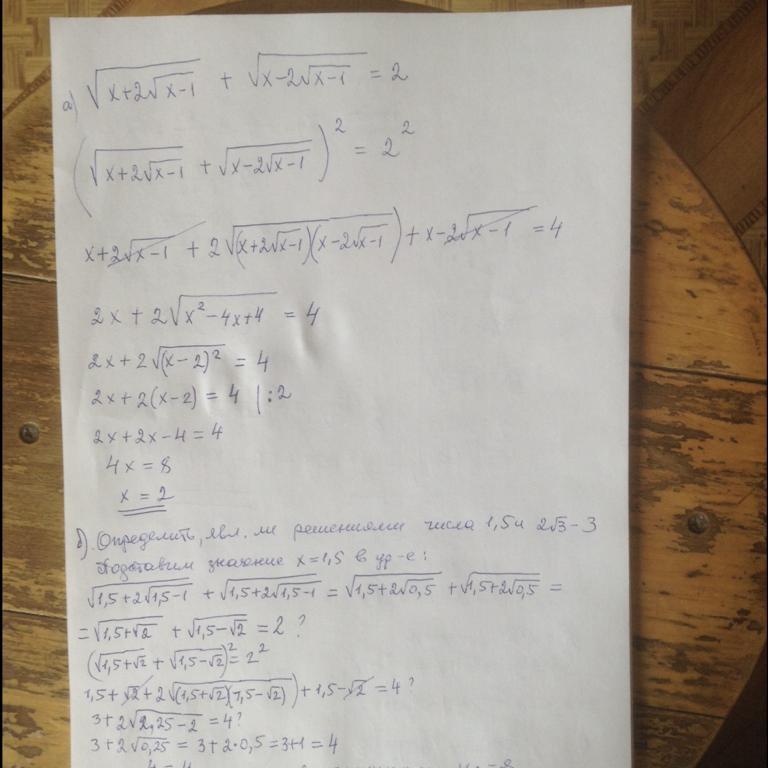 а) √(x+2√(x-1)) + √(x-2√(x-1)) = 2
(√(x+2√(x-1)) + √(x-2√(x-1)))² = 2²
x+2√(x-1) + 2√((x+2√(x-1))(x-2√(x-1))) + x-2√(x-1) = 4
2x + 2√(x²-4x+4) = 4
2x + 2√((x-2)²) = 4
2x + 2(x-2) = 4 |:2
2x+2x-4=4
4x = 8
x = 2
б). Определить, явл. ли решениями числа 1,5 и 2√3-3
Подставим значение x=1,5 в ур-е:
√(1,5+2√(1,5-1)) + √(1,5+2√(1,5-1)) = √(1,5+2√0,5) + √(1,5+2√0,5) =
= √(1,5+√2) + √(1,5-√2) = 2 ?
(√(1,5+√2) + √(1,5-√2))² = 2²
1,5+√2+2√((1,5+√2)(1,5-√2)) + 1,5-√2 = 4 ?
3+2√(2,25-2) = 4?
3+2√0,25 = 3+2·0,5 = 3+1 = 4